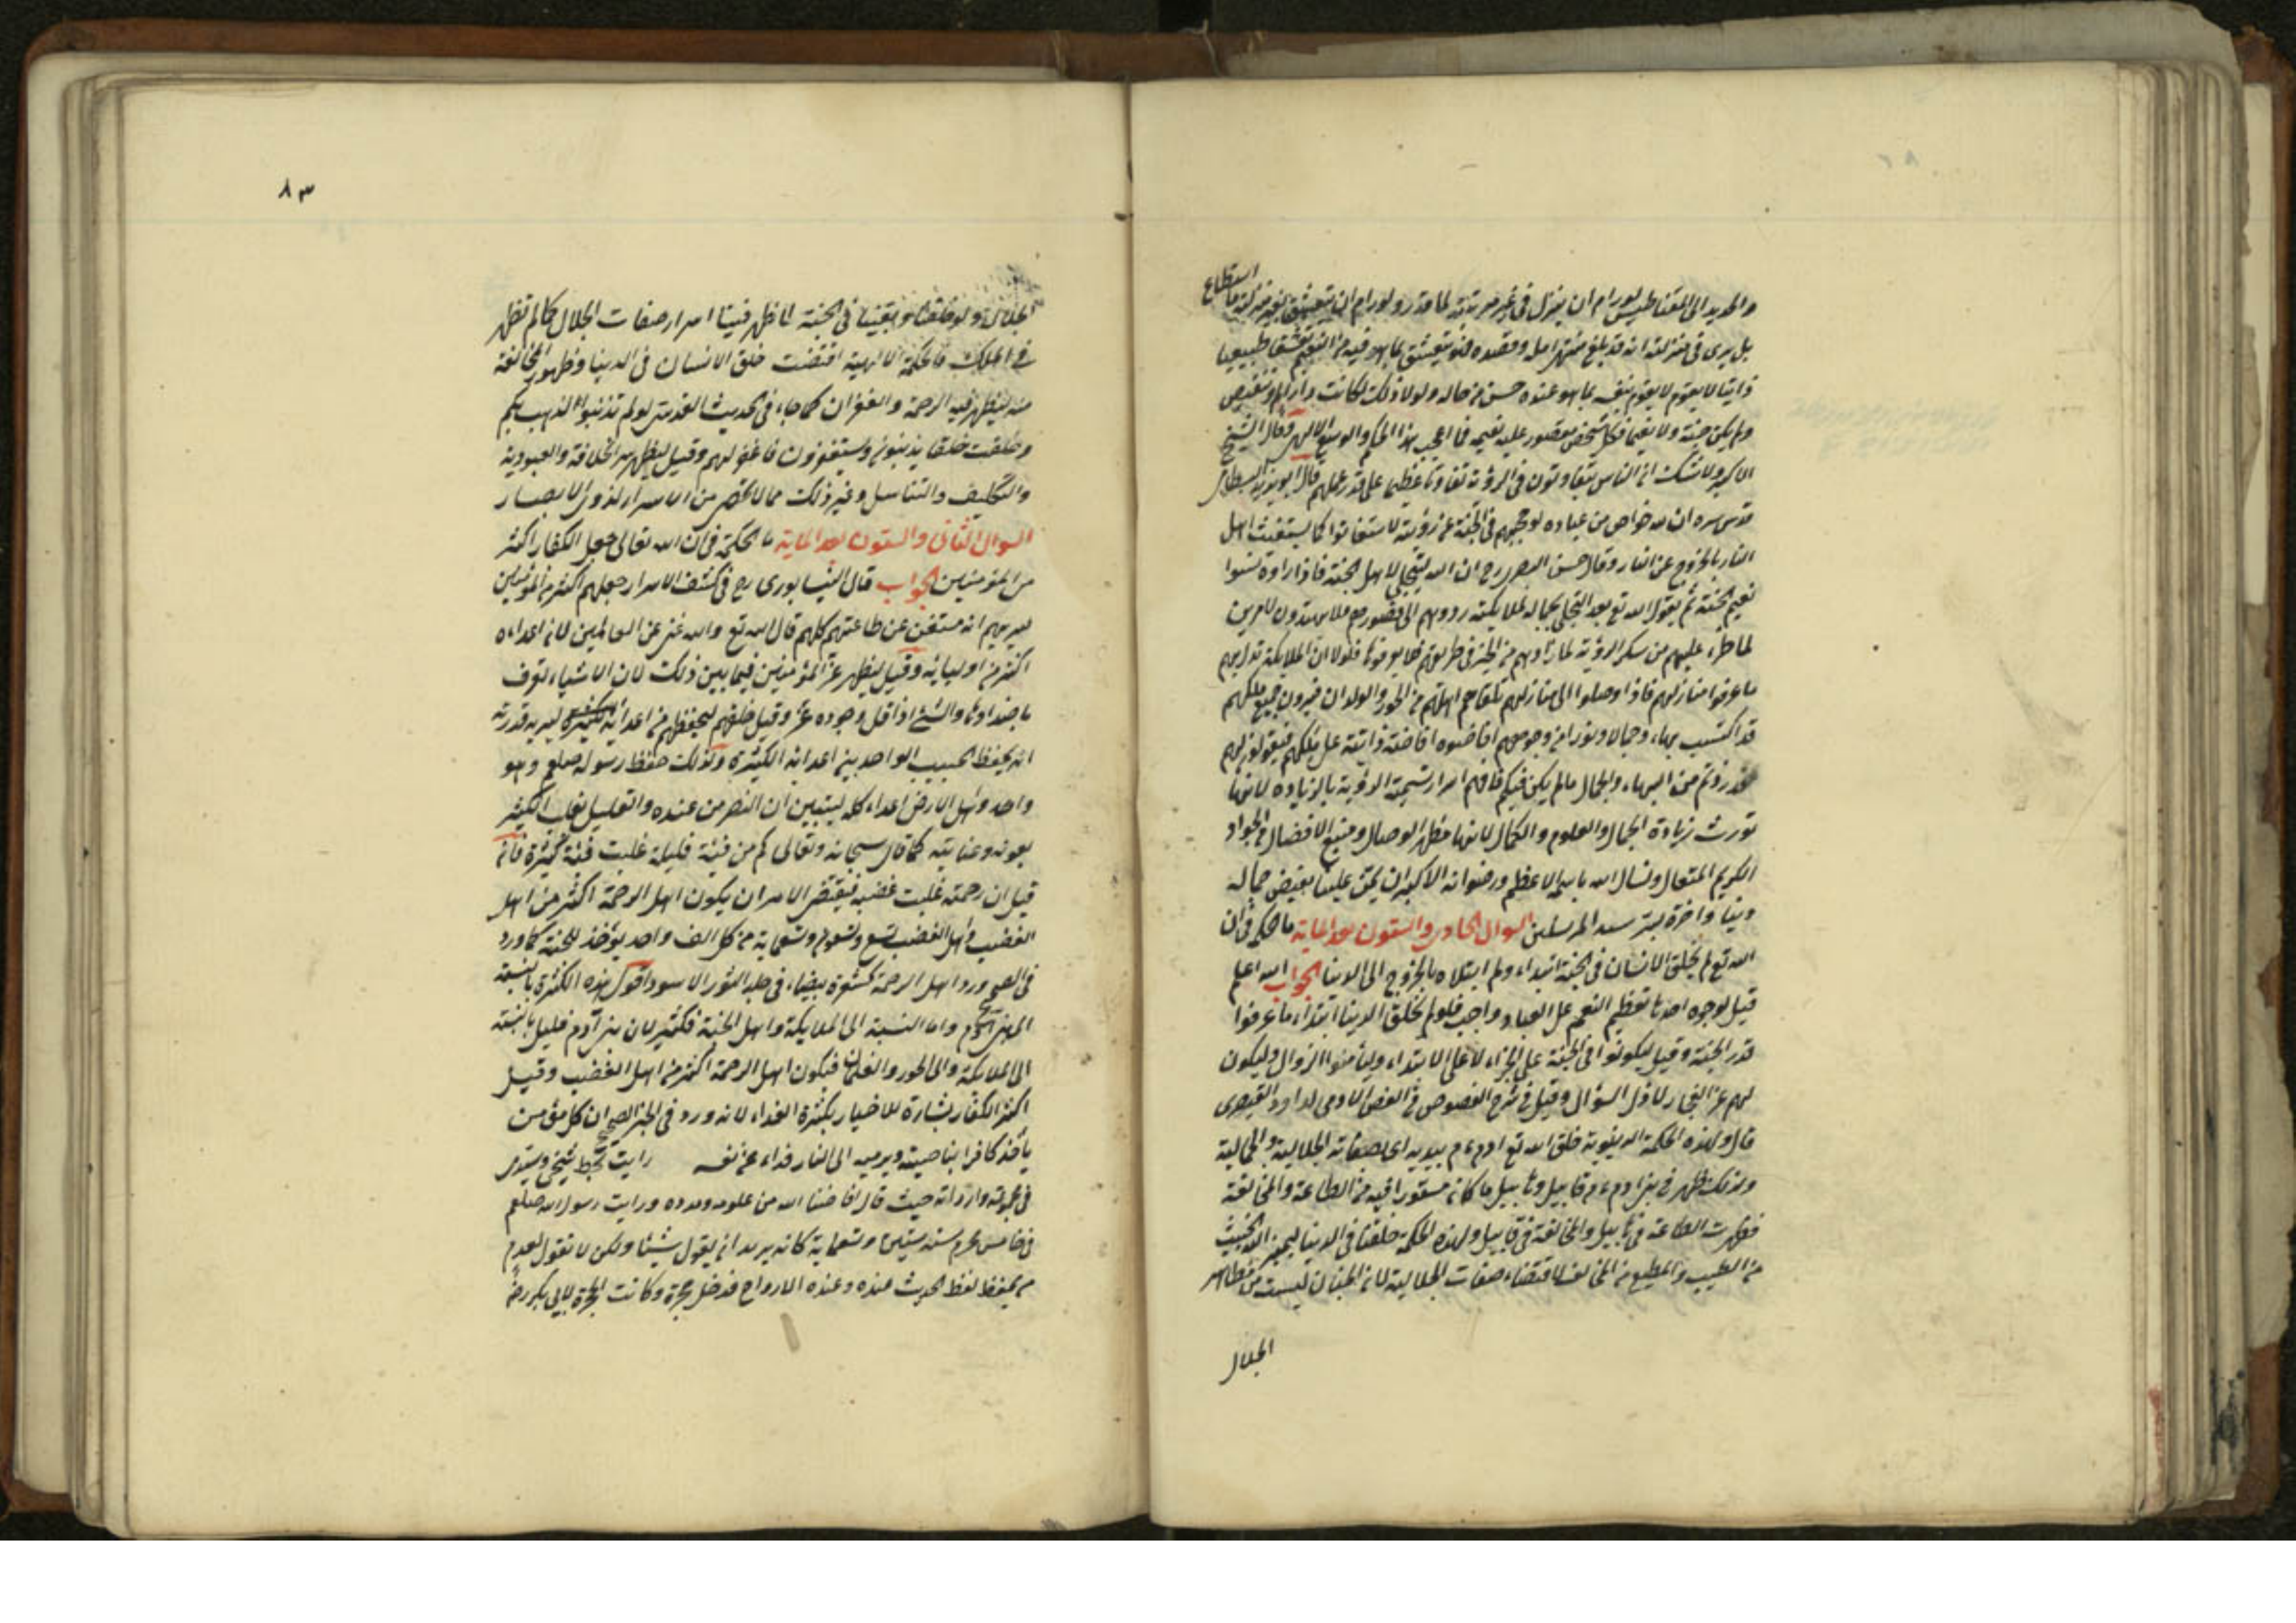 والحديد الى المقناطيس لو رام ان ينزل في غير مرتبته لما قدر ولو رام ان يتعشق بغير منزلته ما استطاع
بل يرى في منزلته انه قد بلغ منتهى امله وقصده فهو يتعشق بما هو فيه من النعيم تعشقا طبيعيا
ذاتيا لا يقوم بنفسه بما هو عنده احسن من حاله ولولا ذلك لكانت دار الم وتنغيص
ولم يكن جنة ولا نعيما فكل شخص مقصور عليه نعيمه فما اعجب هذا الحكم والوسع الالهي وقال الشيخ
الاكبر ولا شك ان الناس يتفاوتون في الرؤية تفاوتا عظيما على قدر علمهم قال ابو يزيد البسطامي
قدس سره ان لله خواص من عباده لو حجبهم في الجنة عن رؤيته لاستغاثوا كما يستغيث اهل
النار بالخروج عن النار وقال حسن البصري رح ان الله يتجلى لاهل الجنة فاذا راوه نسوا
نعيم الجنة ثم يقول الله تع بعد التجلي بجماله لملايكته ردوهم الى قصورهم فلا يهتدون لامرين
لما طرأ عليهم من سكر الرؤية لما زادهم من الخير في طريقهم فلا يعرفونها فلولا ان الملايكة تدل بهم
ما عرفوا منازلهم فاذا وصلوا الى منازلهم تلقاهم اهلهم من الحور والولدان فيرون جميع ملكهم
قد اكتسب بهاء وجمالا ونورا من وجوههم افاضوه افاضة ذاتية على ملكهم فيقولون لهم
لقد زدتم من البهاء والجمال ما لم يكن فيكم فافهم اسرار تسمية الرؤية بالزيادة لانها
تورث زيادة الجمال والعلوم والكمال لانها مظهر الوصال ومنبع الافضال من الجواد
الكريم المتعال ونسال الله باسمه الاعظم ورضوانه الاكبر ان يمن علينا بفيض جماله
دينا واخرة بسر سيد المرسلين السوال الحادى والستون بعد الماية ما الحكمة في ان
الله تع لم يخلق الانسان في الجنة ابتداء ولم ابتلاه بالخروج الى الدينا الجواب الله اعلم
قيل لوجوه احدها تعظيم النعم على العباد واجب فلو لم يخلق الدينا ابتداء ما عرفوا
قدر الجنة وقيل ليكونوا في الجنة على الجزاء لا على الابتداء وليأمنوا الزوال وليكون
لهم عز الفخار لا ذل السؤال وقيل في شرح الفصوص في الفص الادمى لداود القيصرى
قال ولهذه الحكمة الدينوية خلق الله تع ادم عم بيديه اى بصفاته الجلالية والجمالية
ولذلك ظهر في بنى ادم عم قابيل وهابيل ما كان مستورا فيه من الطاعة والمخالفة
فظهرت الطاعة في هابيل والمخالفة في قابيل ولهذه الحكمة خلقنا في الدينا ليميز الله الخبيث
من الطيب والمطيع من المخالف لاقتضاء صفات الجلالية لان الجنان ليست من مظاهر
الجلال
٨٣
الجلال ولو خلقنا وبقينا في الجنة لما ظهر فينا اسرار صفات الجلال كما لم تظهر
في الملك فالحكمة الالهية اقتضت خلق الانسان في الدينا وظهور المخالفة
منه ليظهر فيه الرحمة والغفران كما جاء في الحديث القدسى لو لم تذنبوا لذهبت بكم
وخلقت خلقا يذنبون ويستغفرون فاغفر لهم وقيل ليظهر سر الخلافة والعبودية
والتكليف والتناسل وغير ذلك مما لا تحصر من الاسرار لذوى الابصار
السوال الثانى والستون بعد الماية ما الحكمة في ان الله تعالى جعل الكفار اكثر
من المؤمنين الجواب قال النيسابورى رح في كشف الاسرار جعلهم اكثر من المؤمنين
ليريهم انه مستغن عن طاعتهم كلهم قال الله تع والله غنى عن العالمين لان اعداءه
اكثر من اوليائه وقيل ليظهر عز المؤمنين فيما بين ذلك لان الاشياء تعرف
باضدادها والشئ اذا قل وجوده عز وقيل خلقهم ليحفظهم من اعدائه الكثيرة ليريه قدرته
انه يحفظ الحبيب الواحد بين اعدائه الكثيرة ولذلك حفظ رسوله صلعم وهو
واحد واهل الارض اعداء كله ليتبين ان النصر من عنده والقليل يغلب الكثير
بعونه وعنايته كما قال سبحانه وتعالى كم من فئة قليلة غلبت فئة كثيرة فان
قيل ان رحمته غلبت غضبه فيقتضى الامر ان يكون اهل الرحمة اكثر من اهل
الغضب واهل الغضب تسع وتسعون وتسعماية من كل الف واحد يؤخذ للجنة كما ورد
في الصحيح ورد اهل الرحمة كشعرة بيضاء في جلد الثور الاسود اقول هذه الكثرة بالنسبة
الى بنى آدم واما النسبة الى الملايكة واهل الجنة فكثير لان بنى آدم قليل بالنسبة
الى الملايكة والى الحور والغلمان فيكون اهل الرحمة اكثر من اهل الغضب وقيل
اكثر الكفار بشارة للاخيار بكثرة الفداء لانه ورد في الخبر الصحيح ان كل مؤمن
يأخذ كافرا بناصيته ويرميه الى النار فداء عن نفسه رايت بخط شيخى وسيدى
في مجموعة وارداته حيث قال افاضنا الله من علومه ومدده ورايت رسول الله صلعم
في خامس محرم سنة ستين وتسعماية كانه يريد ان يقول شيئا ولكن لا نقول لعدم
من يحفظ لفظ الحديث عنده وعنده الارواح فدخل حجرة وكانت الحجرة لابى بكر رضه